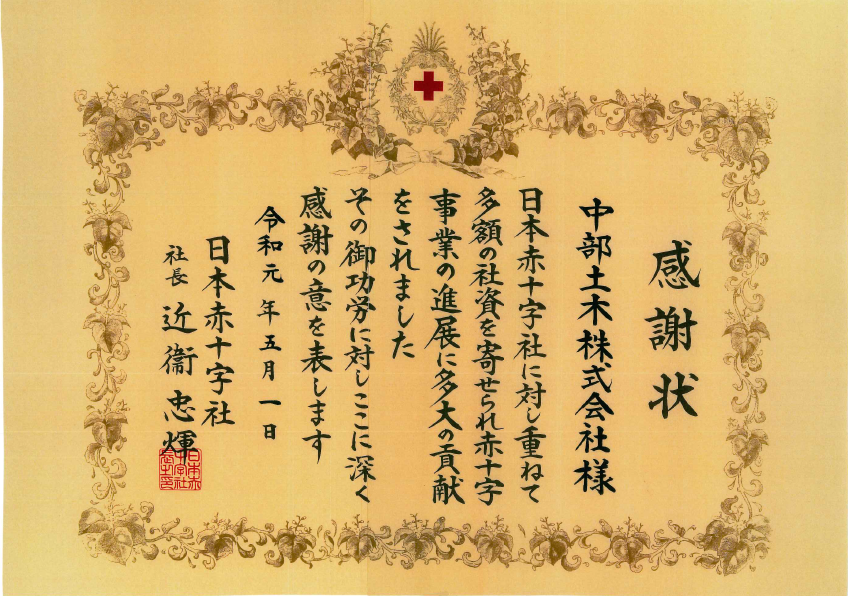 感謝状
中部土木株式会社様
日本赤十字社に対し重ねて
多額の社資を寄せられ赤十字
事業の進展に多大の貢献
をされました
その御功労に対しここに深く
感謝の意を表します
令和元年五月一日
日本赤十字社
社長 近衞忠煇